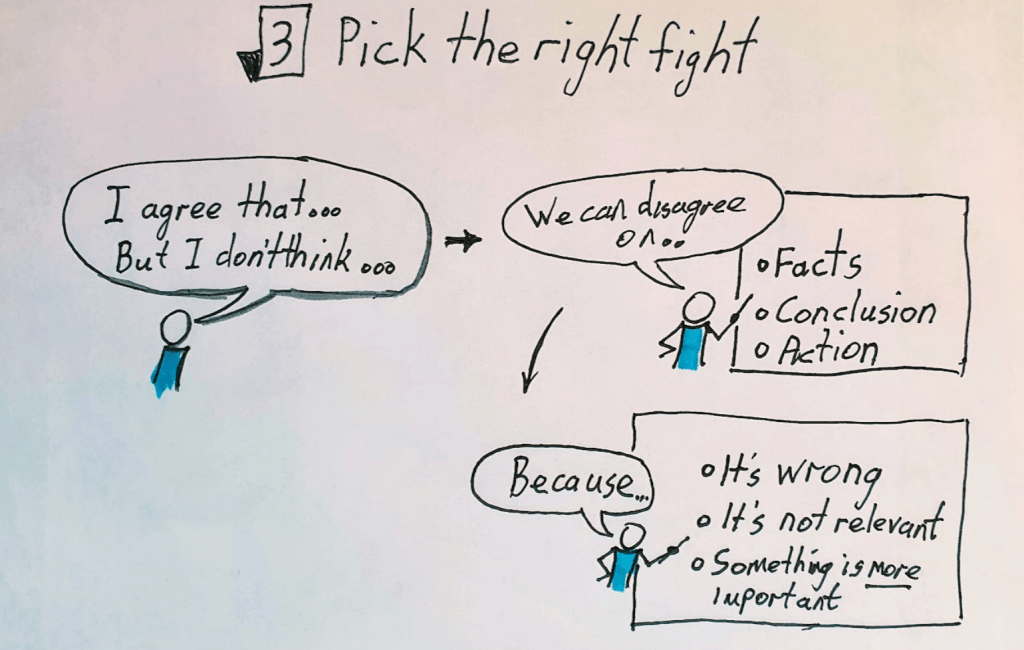 3 Pick the right fight
I agree that...
But I don't think...
We can disagree
on..
• Facts
• Conclusion
• Action
Because...
• It's wrong
• It's not relevant
• Something is more
important